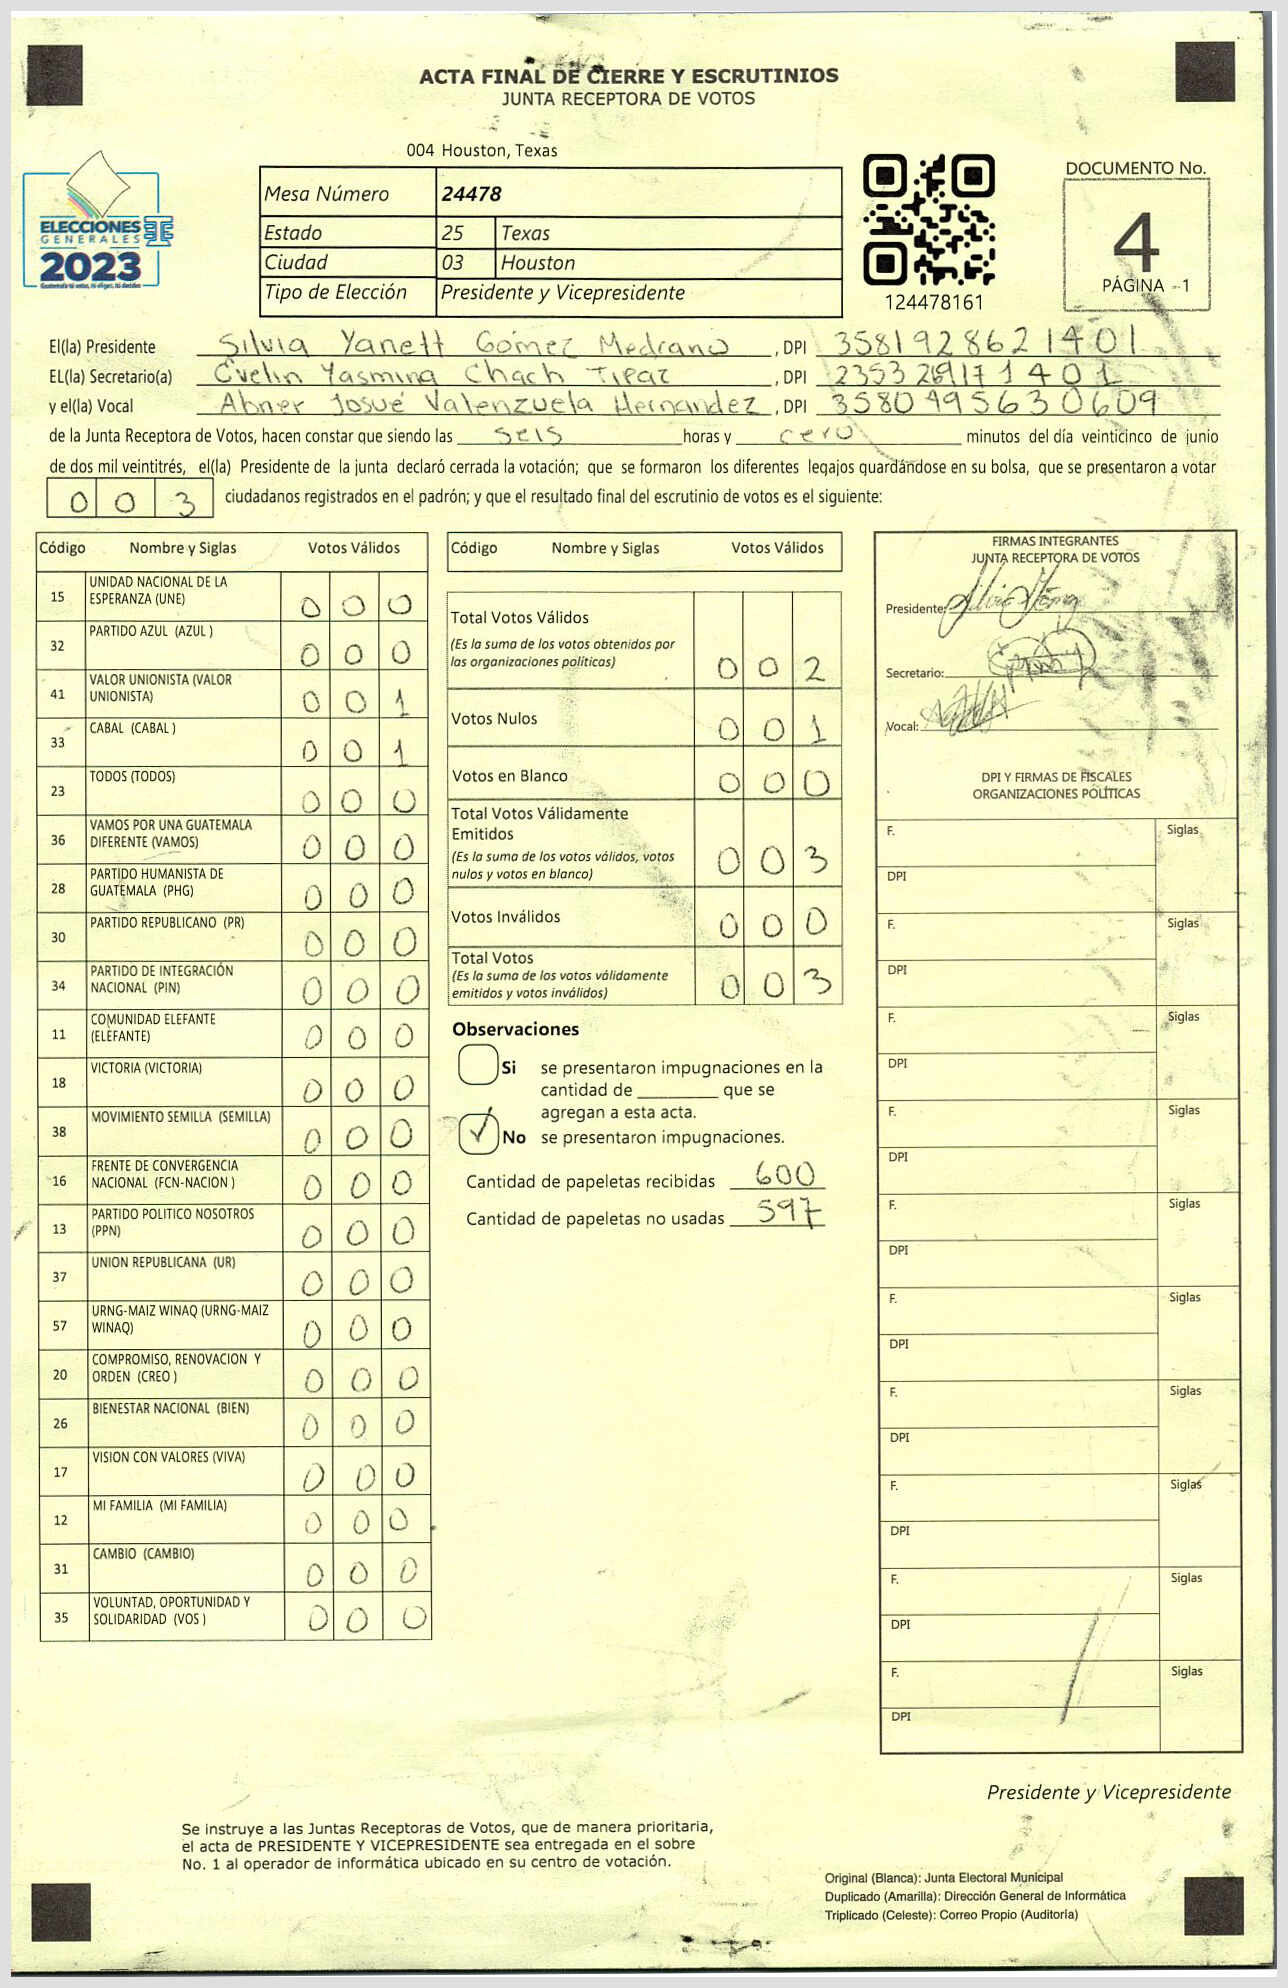 ACTA FINAL DE CIERRE Y ESCRUTINIOS
JUNTA RECEPTORA DE VOTOS
004 Houston, Texas
ELECCIONES
GENERALES
2023
Mesa Número 24478
Estado 25 Texas
Ciudad 03 Houston
Tipo de Elección Presidente y Vicepresidente
124478161
DOCUMENTO No.
4
PÁGINA - 1
El(la) Presidente Silvia Yanett Gómez Medrano, DPI 3581928621401
EL(la) Secretario(a) Evelin Yasmina Chach Tipaz, DPI
y el(la) Vocal Abner Josué Valenzuela Hernandez, DPI 3580495630609
de la Junta Receptora de Votos, hacen constar que siendo las seis horas y cero minutos del día veinticinco de junio
de dos mil veintitrés, el(la) Presidente de la junta declaró cerrada la votación; que se formaron los diferentes legajos guardándose en su bolsa, que se presentaron a votar
0 0 3 ciudadanos registrados en el padrón; y que el resultado final del escrutinio de votos es el siguiente:
Código Nombre y Siglas Votos Válidos
15 UNIDAD NACIONAL DE LA ESPERANZA (UNE) 0 0 0
32 PARTIDO AZUL (AZUL ) 0 0 0
41 VALOR UNIONISTA (VALOR UNIONISTA) 0 0 1
33 CABAL (CABAL ) 0 0 1
23 TODOS (TODOS) 0 0 0
36 VAMOS POR UNA GUATEMALA DIFERENTE (VAMOS) 0 0 0
28 PARTIDO HUMANISTA DE GUATEMALA (PHG) 0 0 0
30 PARTIDO REPUBLICANO (PR) 0 0 0
34 PARTIDO DE INTEGRACIÓN NACIONAL (PIN) 0 0 0
11 COMUNIDAD ELEFANTE (ELEFANTE) 0 0 0
18 VICTORIA (VICTORIA) 0 0 0
38 MOVIMIENTO SEMILLA (SEMILLA) 0 0 0
16 FRENTE DE CONVERGENCIA NACIONAL (FCN-NACION ) 0 0 0
13 PARTIDO POLITICO NOSOTROS (PPN) 0 0 0
37 UNION REPUBLICANA (UR) 0 0 0
57 URNG-MAIZ WINAQ (URNG-MAIZ WINAQ) 0 0 0
20 COMPROMISO, RENOVACION Y ORDEN (CREO ) 0 0 0
26 BIENESTAR NACIONAL (BIEN) 0 0 0
17 VISION CON VALORES (VIVA) 0 0 0
12 MI FAMILIA (MI FAMILIA) 0 0 0
31 CAMBIO (CAMBIO) 0 0 0
35 VOLUNTAD, OPORTUNIDAD Y SOLIDARIDAD (VOS ) 0 0 0
Código Nombre y Siglas Votos Válidos
Total Votos Válidos
(Es la suma de los votos obtenidos por
las organizaciones políticas) 0 0 2
Votos Nulos 0 0 1
Votos en Blanco 0 0 0
Total Votos Válidamente
Emitidos
(Es la suma de los votos válidos, votos
nulos y votos en blanco) 0 0 3
Votos Inválidos 0 0 0
Total Votos
(Es la suma de los votos válidamente
emitidos y votos inválidos) 0 0 3
Observaciones
Si se presentaron impugnaciones en la
cantidad de ________ que se
agregan a esta acta.
No se presentaron impugnaciones.
Cantidad de papeletas recibidas 600
Cantidad de papeletas no usadas 597
FIRMAS INTEGRANTES
JUNTA RECEPTORA DE VOTOS
Presidente:
Secretario:
Vocal:
DPI Y FIRMAS DE FISCALES
ORGANIZACIONES POLÍTICAS
F. Siglas
DPI
F. Siglas
DPI
F. Siglas
DPI
F. Siglas
DPI
F. Siglas
DPI
F. Siglas
DPI
F. Siglas
DPI
F. Siglas
DPI
F. Siglas
DPI
F. Siglas
DPI
Presidente y Vicepresidente
Se instruye a las Juntas Receptoras de Votos, que de manera prioritaria,
el acta de PRESIDENTE Y VICEPRESIDENTE sea entregada en el sobre
No. 1 al operador de informática ubicado en su centro de votación.
Original (Blanca): Junta Electoral Municipal
Duplicado (Amarilla): Dirección General de Informática
Triplicado (Celeste): Correo Propio (Auditoría)